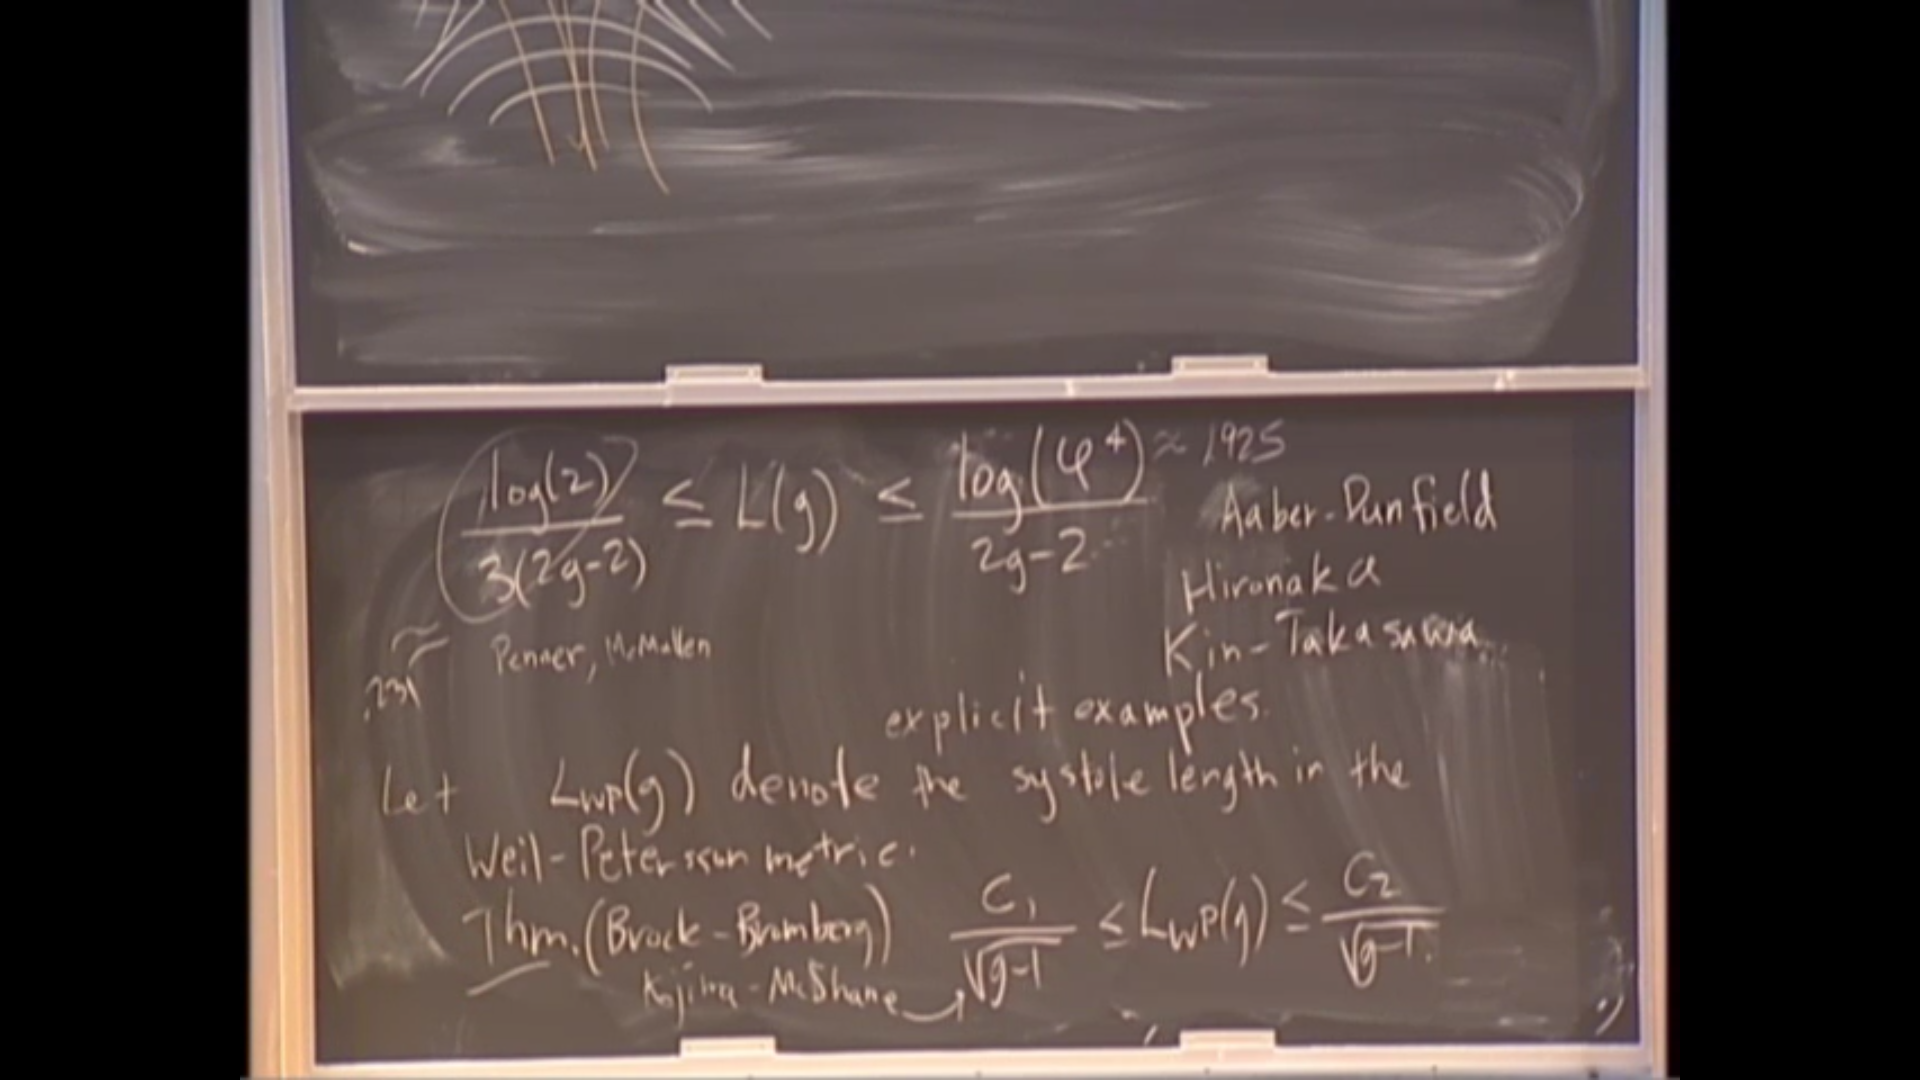 log(2) / 3(2g-2) ≤ L(g) ≤ log(φ⁴) / 2g-2 ≈ 1.925
Aaber-Dunfield
Hironaka
≈ .231
Penner, McMullen
Kin-Takasawa
explicit examples.
Let L_WP(g) denote the systole length in the
Weil-Petersson metric.
Thm. (Brock-Bromberg) C₁ / √g-1 ≤ L_WP(g) ≤ C₂ / √g-1.
Kojima-McShane